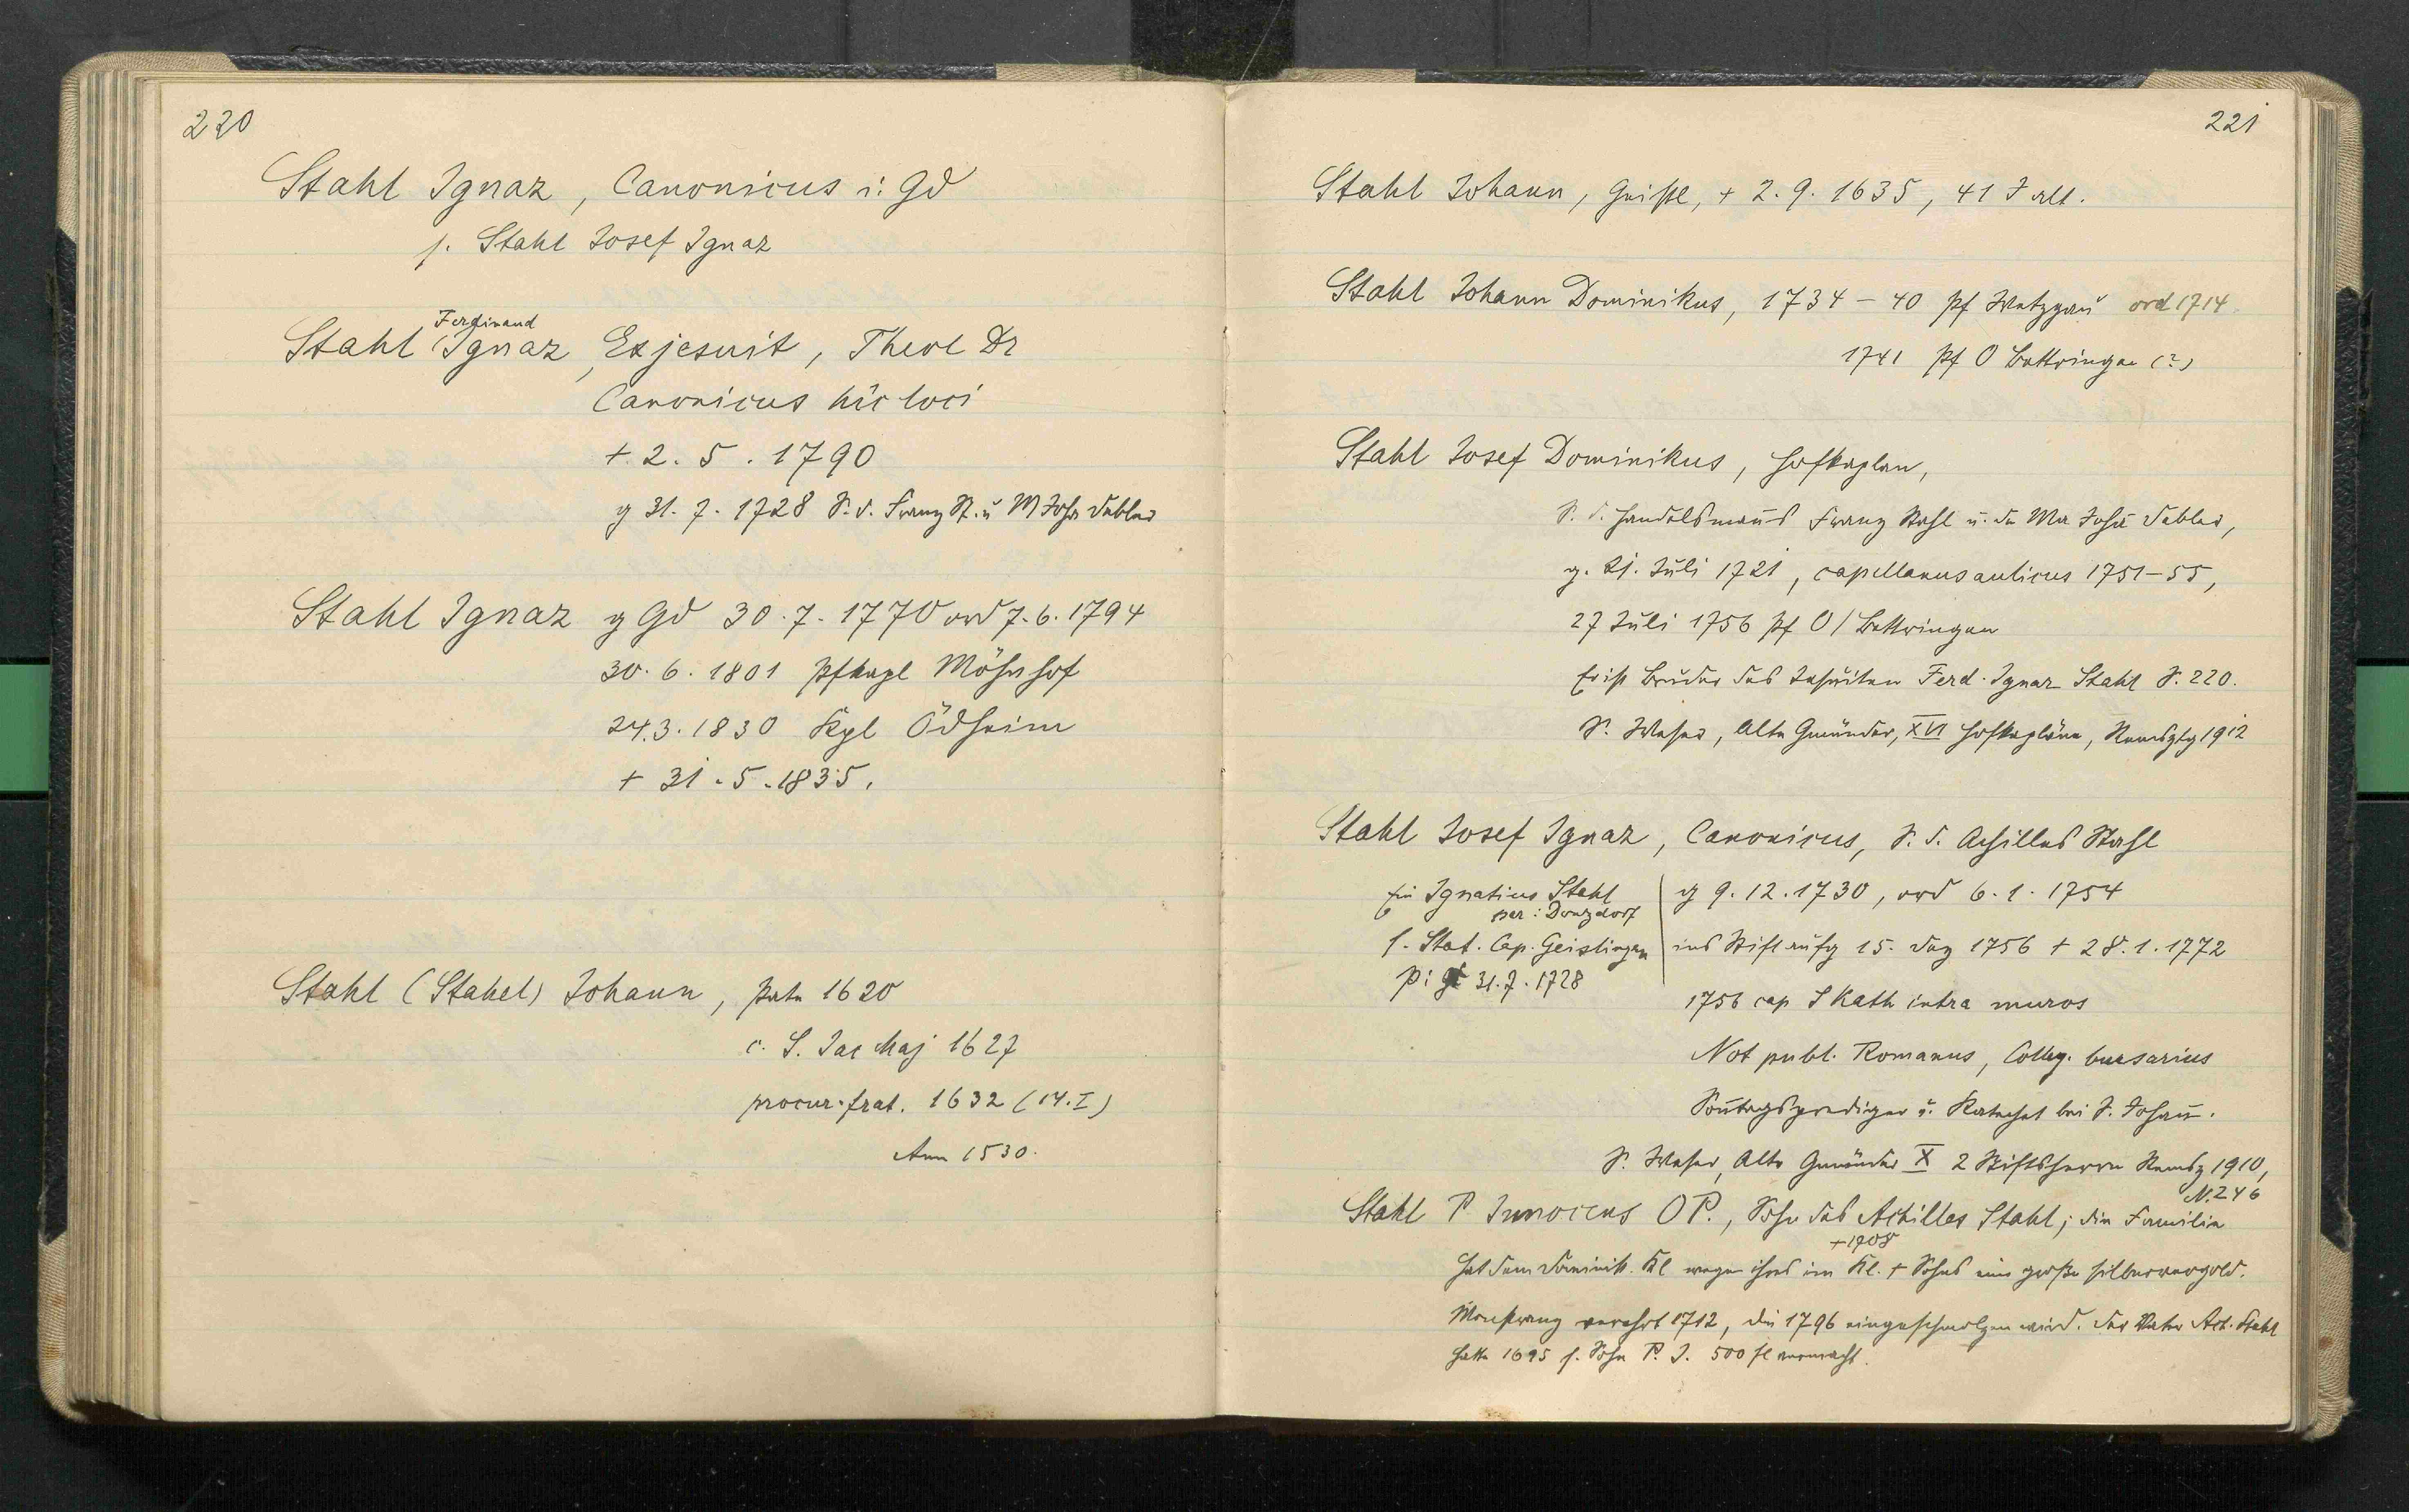 220
Stahl Ignaz, Canonicus i. Gd
s. Stahl Josef Ignaz
Ferdinand
Stahl Ignaz, Exjesuit, Theol Dr
Canonicus hic loci
+ 2. 5. 1790
g 31. 7. 1728 S. d. Franz St. u M Joha Debler
Stahl Ignaz g Gd 30. 7. 1770 ord 7. 6. 1794
30. 6. 1801 Pfkapl Möhnhof
24.3. 1830 Kpl Ödheim
+ 31. 5. 1835.
Stahl (Stahel) Johann, Pate 1620
c. S. Jac Maj 1627
procur. frat. 1632 (14. I)
Ann 1530.
221
Stahl Johann, Geistl, + 2. 9. 1635, 41 J alt.
Stahl Johann Dominikus, 1734–40 Pf Wetzgau ord 1714.
1741 Pf O Bettringen (?)
Stahl Josef Dominikus, Hofkaplan,
S. d. Handelsmans Franz Stahl u. der Ma Joha Debler,
g. 21. Juli 1721, capellanus aulicus 1751–55,
27 Juli 1756 Pf O/Bettringen
Er ist Bruder des Jesuiten Ferd. Ignaz Stahl S. 220.
S. Weser, Alte Gmünder, XVI Hofkapläne, Remsztg 1912
Stahl Josef Ignaz, Canonicus, S. d. Achilles Stahl
Ein Ignatius Stahl
par: Donzdorf
s. Stat. Cap. Geislingen
g 9. 12. 1730, ord 6. 1. 1754
ins Stift aufg 15. Dez 1756 + 28. 1. 1772
31. 7. 1728
1756 cap S Kath intra muros
Not publ. Romanus, Colleg. bursarius
Sontagsprediger u. Katechet bei S. Johan.
S. Weser, Alte Gmünder X 2 Stiftsherrn Remsz 1910,
N. 246
Stahl P Innocens OP., Sohn des Achilles Stahl; die Familie
+1708
hat dem Dominik. Kl wegen ihres im Kl. + Sohnes eine große silbervergold.
Monstranz verehrt 1712, die 1796 eingeschmolzen wird. Der Vater Ach. Stahl
hatte 1695 s. Sohn P. J. 500 fl vermacht.